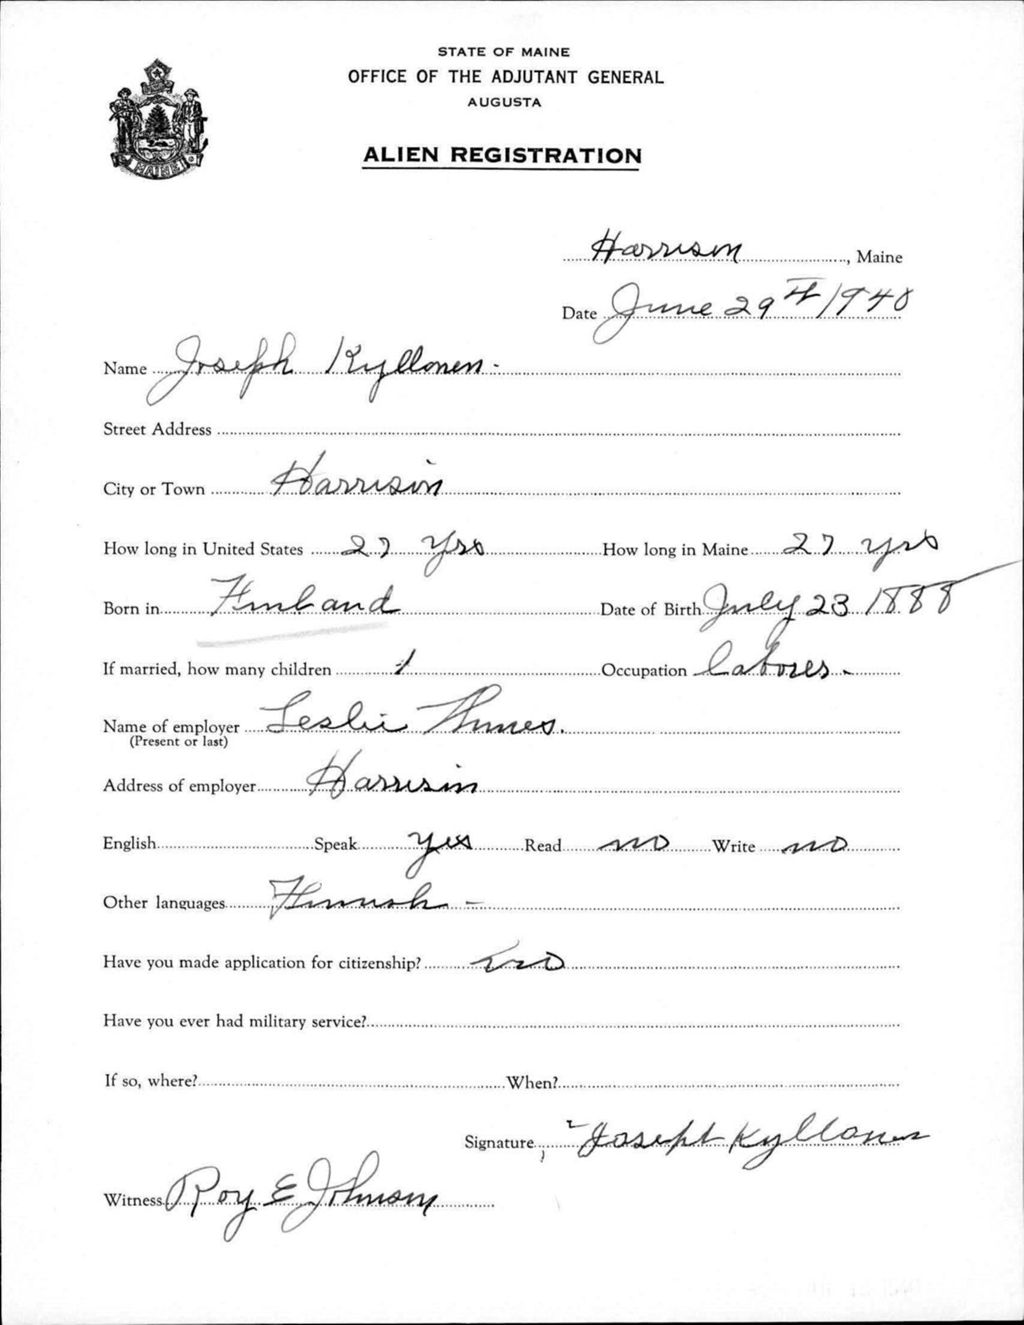 STATE OF MAINE
OFFICE OF THE ADJUTANT GENERAL
AUGUSTA
ALIEN REGISTRATION
MAINE
Harrison, Maine
Date June 29th 1940
Name Joseph Kyllonen -
Street Address
City or Town Harrison
How long in United States 27 yrs How long in Maine 27 yrs
Born in Finland Date of Birth July 23 1888
If married, how many children 1 Occupation laborer -
Name of employer Leslie
(Present or last)
Address of employer Harrison
English Speak yes Read no Write no
Other languages Finnish -
Have you made application for citizenship? no
Have you ever had military service?
If so, where? When?
Signature Joseph Kyllonen
Witness Roy E Johnson